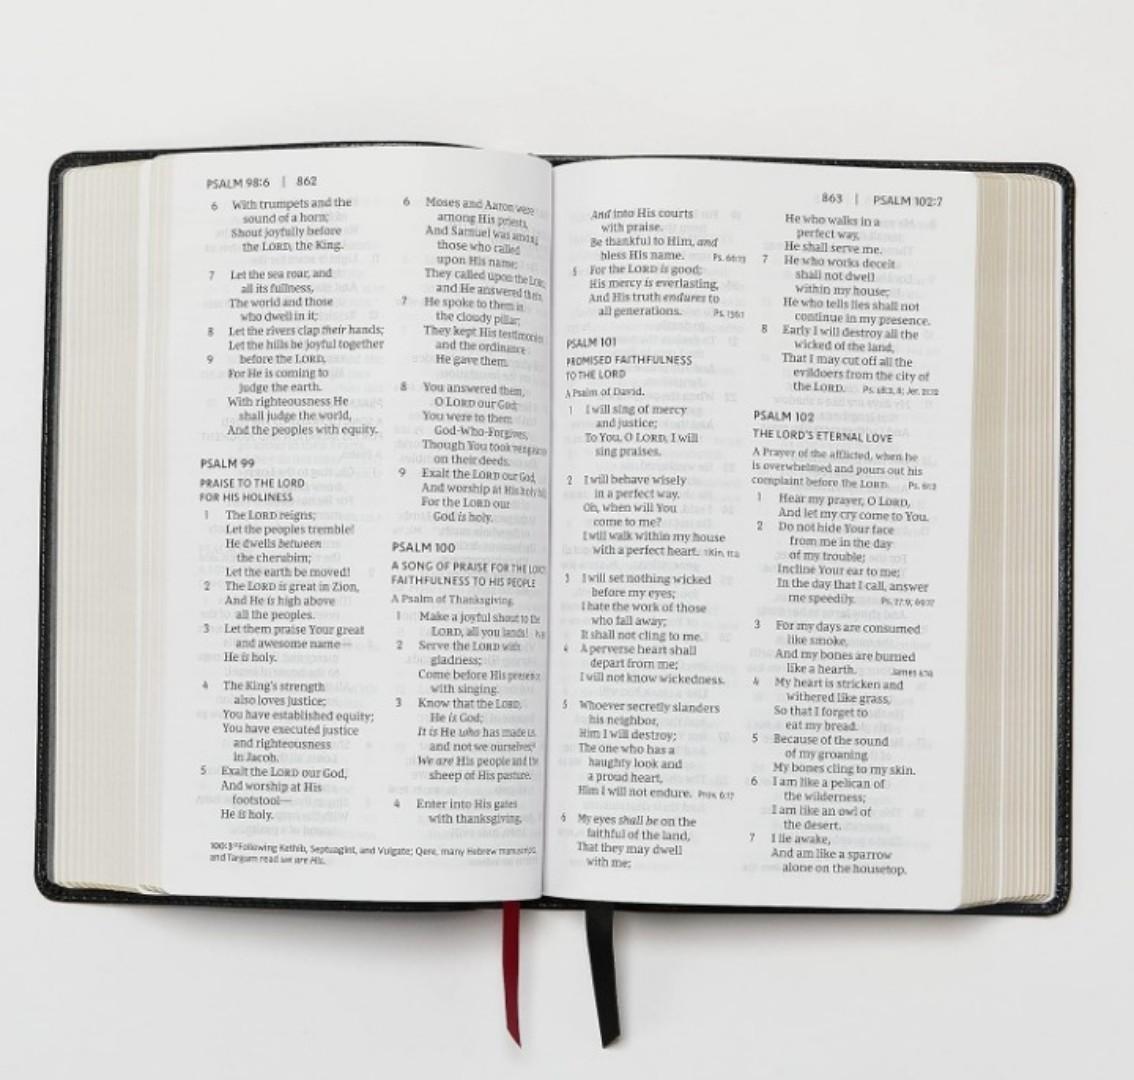 PSALM 98:6 | 862
6 With trumpets and the
sound of a horn;
Shout joyfully before
the LORD, the King.
7 Let the sea roar, and
all its fullness,
The world and those
who dwell in it;
8 Let the rivers clap their hands;
Let the hills be joyful together
9 before the LORD,
For He is coming to
judge the earth.
With righteousness He
shall judge the world,
And the peoples with equity.
PSALM 99
PRAISE TO THE LORD
FOR HIS HOLINESS
1 The LORD reigns;
Let the peoples tremble!
He dwells between
the cherubim;
Let the earth be moved!
2 The LORD is great in Zion,
And He is high above
all the peoples.
3 Let them praise Your great
and awesome name—
He is holy.
4 The King's strength
also loves justice;
You have established equity;
You have executed justice
and righteousness
in Jacob.
5 Exalt the LORD our God,
And worship at His
footstool—
He is holy.
6 Moses and Aaron were
among His priests,
And Samuel was among
those who called
upon His name;
They called upon the LORD,
and He answered them.
7 He spoke to them in
the cloudy pillar;
They kept His testimonies
and the ordinance
He gave them.
8 You answered them,
O LORD our God;
You were to them
God-Who-Forgives,
Though You took vengeance
on their deeds.
9 Exalt the LORD our God,
And worship at His holy hill;
For the LORD our
God is holy.
PSALM 100
A SONG OF PRAISE FOR THE LORD'S
FAITHFULNESS TO HIS PEOPLE
A Psalm of Thanksgiving.
1 Make a joyful shout to the
LORD, all you lands!
2 Serve the LORD with
gladness;
Come before His presence
with singing.
3 Know that the LORD,
He is God;
It is He who has made us,
and not we ourselves;
We are His people and the
sheep of His pasture.
4 Enter into His gates
with thanksgiving,
100:3 Following Kethib, Septuagint, and Vulgate; Qere, many Hebrew manuscripts,
and Targum read we are His.
863 | PSALM 102:7
And into His courts
with praise.
Be thankful to Him, and
bless His name.
5 For the LORD is good;
His mercy is everlasting,
And His truth endures to
all generations. Ps. 136:1
PSALM 101
PROMISED FAITHFULNESS
TO THE LORD
A Psalm of David.
1 I will sing of mercy
and justice;
To You, O LORD, I will
sing praises.
2 I will behave wisely
in a perfect way.
Oh, when will You
come to me?
I will walk within my house
with a perfect heart. 1 Kin. 11:4
3 I will set nothing wicked
before my eyes;
I hate the work of those
who fall away;
It shall not cling to me.
4 A perverse heart shall
depart from me;
I will not know wickedness.
5 Whoever secretly slanders
his neighbor,
Him I will destroy;
The one who has a
haughty look and
a proud heart,
Him I will not endure. Prov. 6:17
6 My eyes shall be on the
faithful of the land,
That they may dwell
with me;
He who walks in a
perfect way,
He shall serve me.
7 He who works deceit
shall not dwell
within my house;
He who tells lies shall not
continue in my presence.
8 Early I will destroy all the
wicked of the land,
That I may cut off all the
evildoers from the city of
the LORD.
PSALM 102
THE LORD'S ETERNAL LOVE
A Prayer of the afflicted, when he
is overwhelmed and pours out his
complaint before the LORD.
1 Hear my prayer, O LORD,
And let my cry come to You.
2 Do not hide Your face
from me in the day
of my trouble;
Incline Your ear to me;
In the day that I call, answer
me speedily.
3 For my days are consumed
like smoke,
And my bones are burned
like a hearth.
4 My heart is stricken and
withered like grass,
So that I forget to
eat my bread.
5 Because of the sound
of my groaning
My bones cling to my skin.
6 I am like a pelican of
the wilderness;
I am like an owl of
the desert.
7 I lie awake,
And am like a sparrow
alone on the housetop.